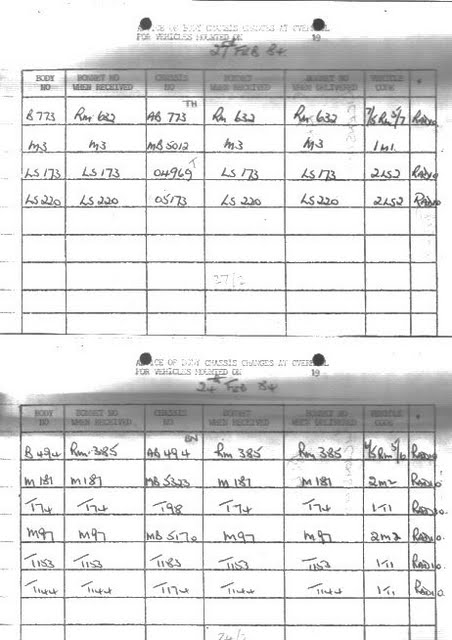 ADVICE OF BODY CHASSIS CHANGES AT OVERHAUL
FOR VEHICLES MOUNTED ON 19
27th FEB 84.
BODY NO BONNET NO WHEN RECEIVED CHASSIS NO BONNET WHEN RECEIVED BONNET NO WHEN DELIVERED VEHICLE CODE
B773 Rm 632 AB 773 TH Rm 632 Rm 632 7/5 Rm 5/7 RADIO
M3 M3 MB 5012 M3 M3 1M1
LS 173 LS 173 04969 T LS 173 LS 173 2LS2 RADIO
LS 220 LS 220 05173 LS 220 LS 220 2LS2 RADIO
27/2
ADVICE OF BODY CHASSIS CHANGES AT OVERHAUL
FOR VEHICLES MOUNTED ON 19
24th FEB 84
BODY NO BONNET NO WHEN RECEIVED CHASSIS NO BONNET WHEN RECEIVED BONNET NO WHEN DELIVERED VEHICLE CODE
B494 Rm 385 AB 494 BN Rm 385 Rm 385 Rm RADIO
M 181 M 181 MB 5323 M 181 M 181 2M2 RADIO
T74 T74 T98 T74 T74 1T1 RADIO.
M97 M97 MB 5170 M97 M97 2M2 RADIO.
T1153 T1153 T1183 T1153 T1153 1T1 RADIO.
T1144 T1144 T1174 T1144 T1144 1T1 RADIO.
24/2